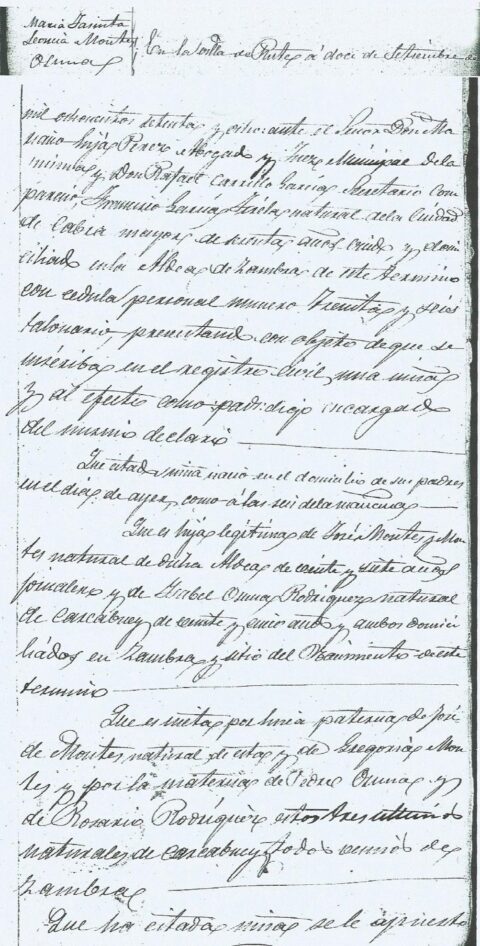 Maria Jasinta
Leoncia Montes
Osuna
En la Villa de Rute, á doce de Setiembre de
mil ochocientos setenta y ocho: ante el Señor Don Ma
riano Perez Abogado y Juez Municipal de la
misma y Don Rafael Carrillo Garcia Secretario com
pareció Francisco Garcia natural de la Ciudad
de Cabra mayor de treinta años y domi
ciliado en la Aldea de Zambra de este termino
con cedula personal numero treinta y seis
talonario, presentando con objeto de que se
inscriba en el registro civil una niña
y al efecto como encargado
del mismo declaró
Que citada niña nació en el domicilio de sus padres
en el dia de ayer, como á las seis de la mañana
Que es hija legitima de José Montes y Mon
tes natural de dicha Aldea de veinte y siete años
jornalero y de Isabel Osuna Rodriguez natural
de Carcabuey de veinte y cinco años y ambos domici
liados en Zambra y sitio del Nacimiento de este
termino
Que es nieta por linia paterna de José
de Montes natural de esta y de Gregoria Mon
tes y por la materna de Pedro Osuna y
de Rosario Rodriguez estos tres ultimos
naturales de Carcabuey, todos vecinos de
Zambra
Que ha citada niña se le a puesto